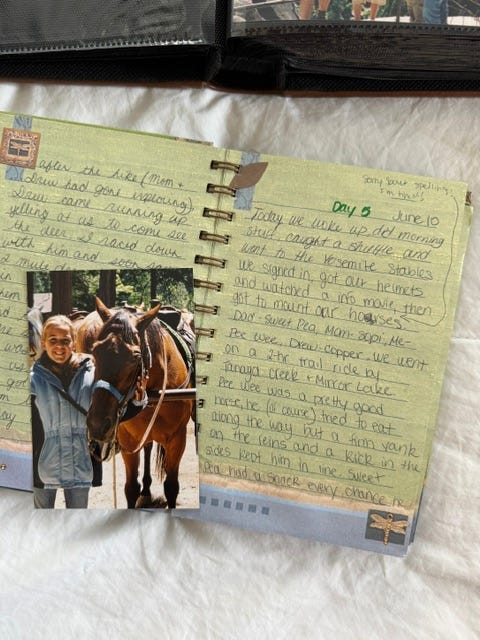 after the hike (Mom +
Drew had gone exploring)
Drew came running up
yelling at us to come see
the deer. I raced down
with him and soon
I
them
sorry bout spelling,
I'm tired
Day 5 June 10
Today we woke up, did morning
stuff, caught a shuttle, and
went to the Yosemite Stables
we signed in, got our helmets
and watched a info movie, then
got to mount our horses.
Dad-Sweet Pea, Mom-
Pee wee, Drew-Copper. we went
on a 2hr trail ride by
Tanaya Creek + Mirror Lake
Pee wee was a pretty good
horse, he (of cause) tried to eat
along the way but a firm yank
on the reins and a kick in the
sides kept him in line. Sweet
Pea had a snack every chance he